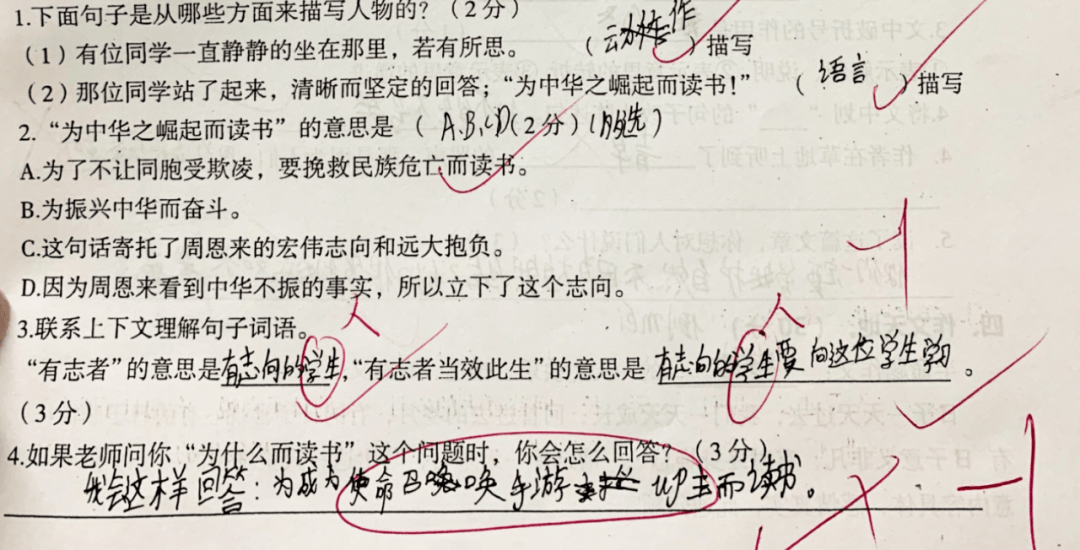 1.下面句子是从哪些方面来描写人物的？（2分）
（1）有位同学一直静静的坐在那里，若有所思。（动作）描写
（2）那位同学站了起来，清晰而坚定的回答；“为中华之崛起而读书！”（语言）描写
2.“为中华之崛起而读书”的意思是（A.B.C.D（2分））
A.为了不让同胞受欺凌，要挽救民族危亡而读书。
B.为振兴中华而奋斗。
C.这句话寄托了周恩来的宏伟志向和远大抱负。
D.因为周恩来看到中华不振的事实，所以立下了这个志向。
3.联系上下文理解句子词语。
人 人
“有志者”的意思是有志向的学生，“有志者当效此生”的意思是有志向的学生要向这位学生学习。
（3分）
4.如果老师问你“为什么而读书”这个问题时，你会怎么回答？（3分）
我会这样回答：为成为使命召唤手游 而读书。
-1